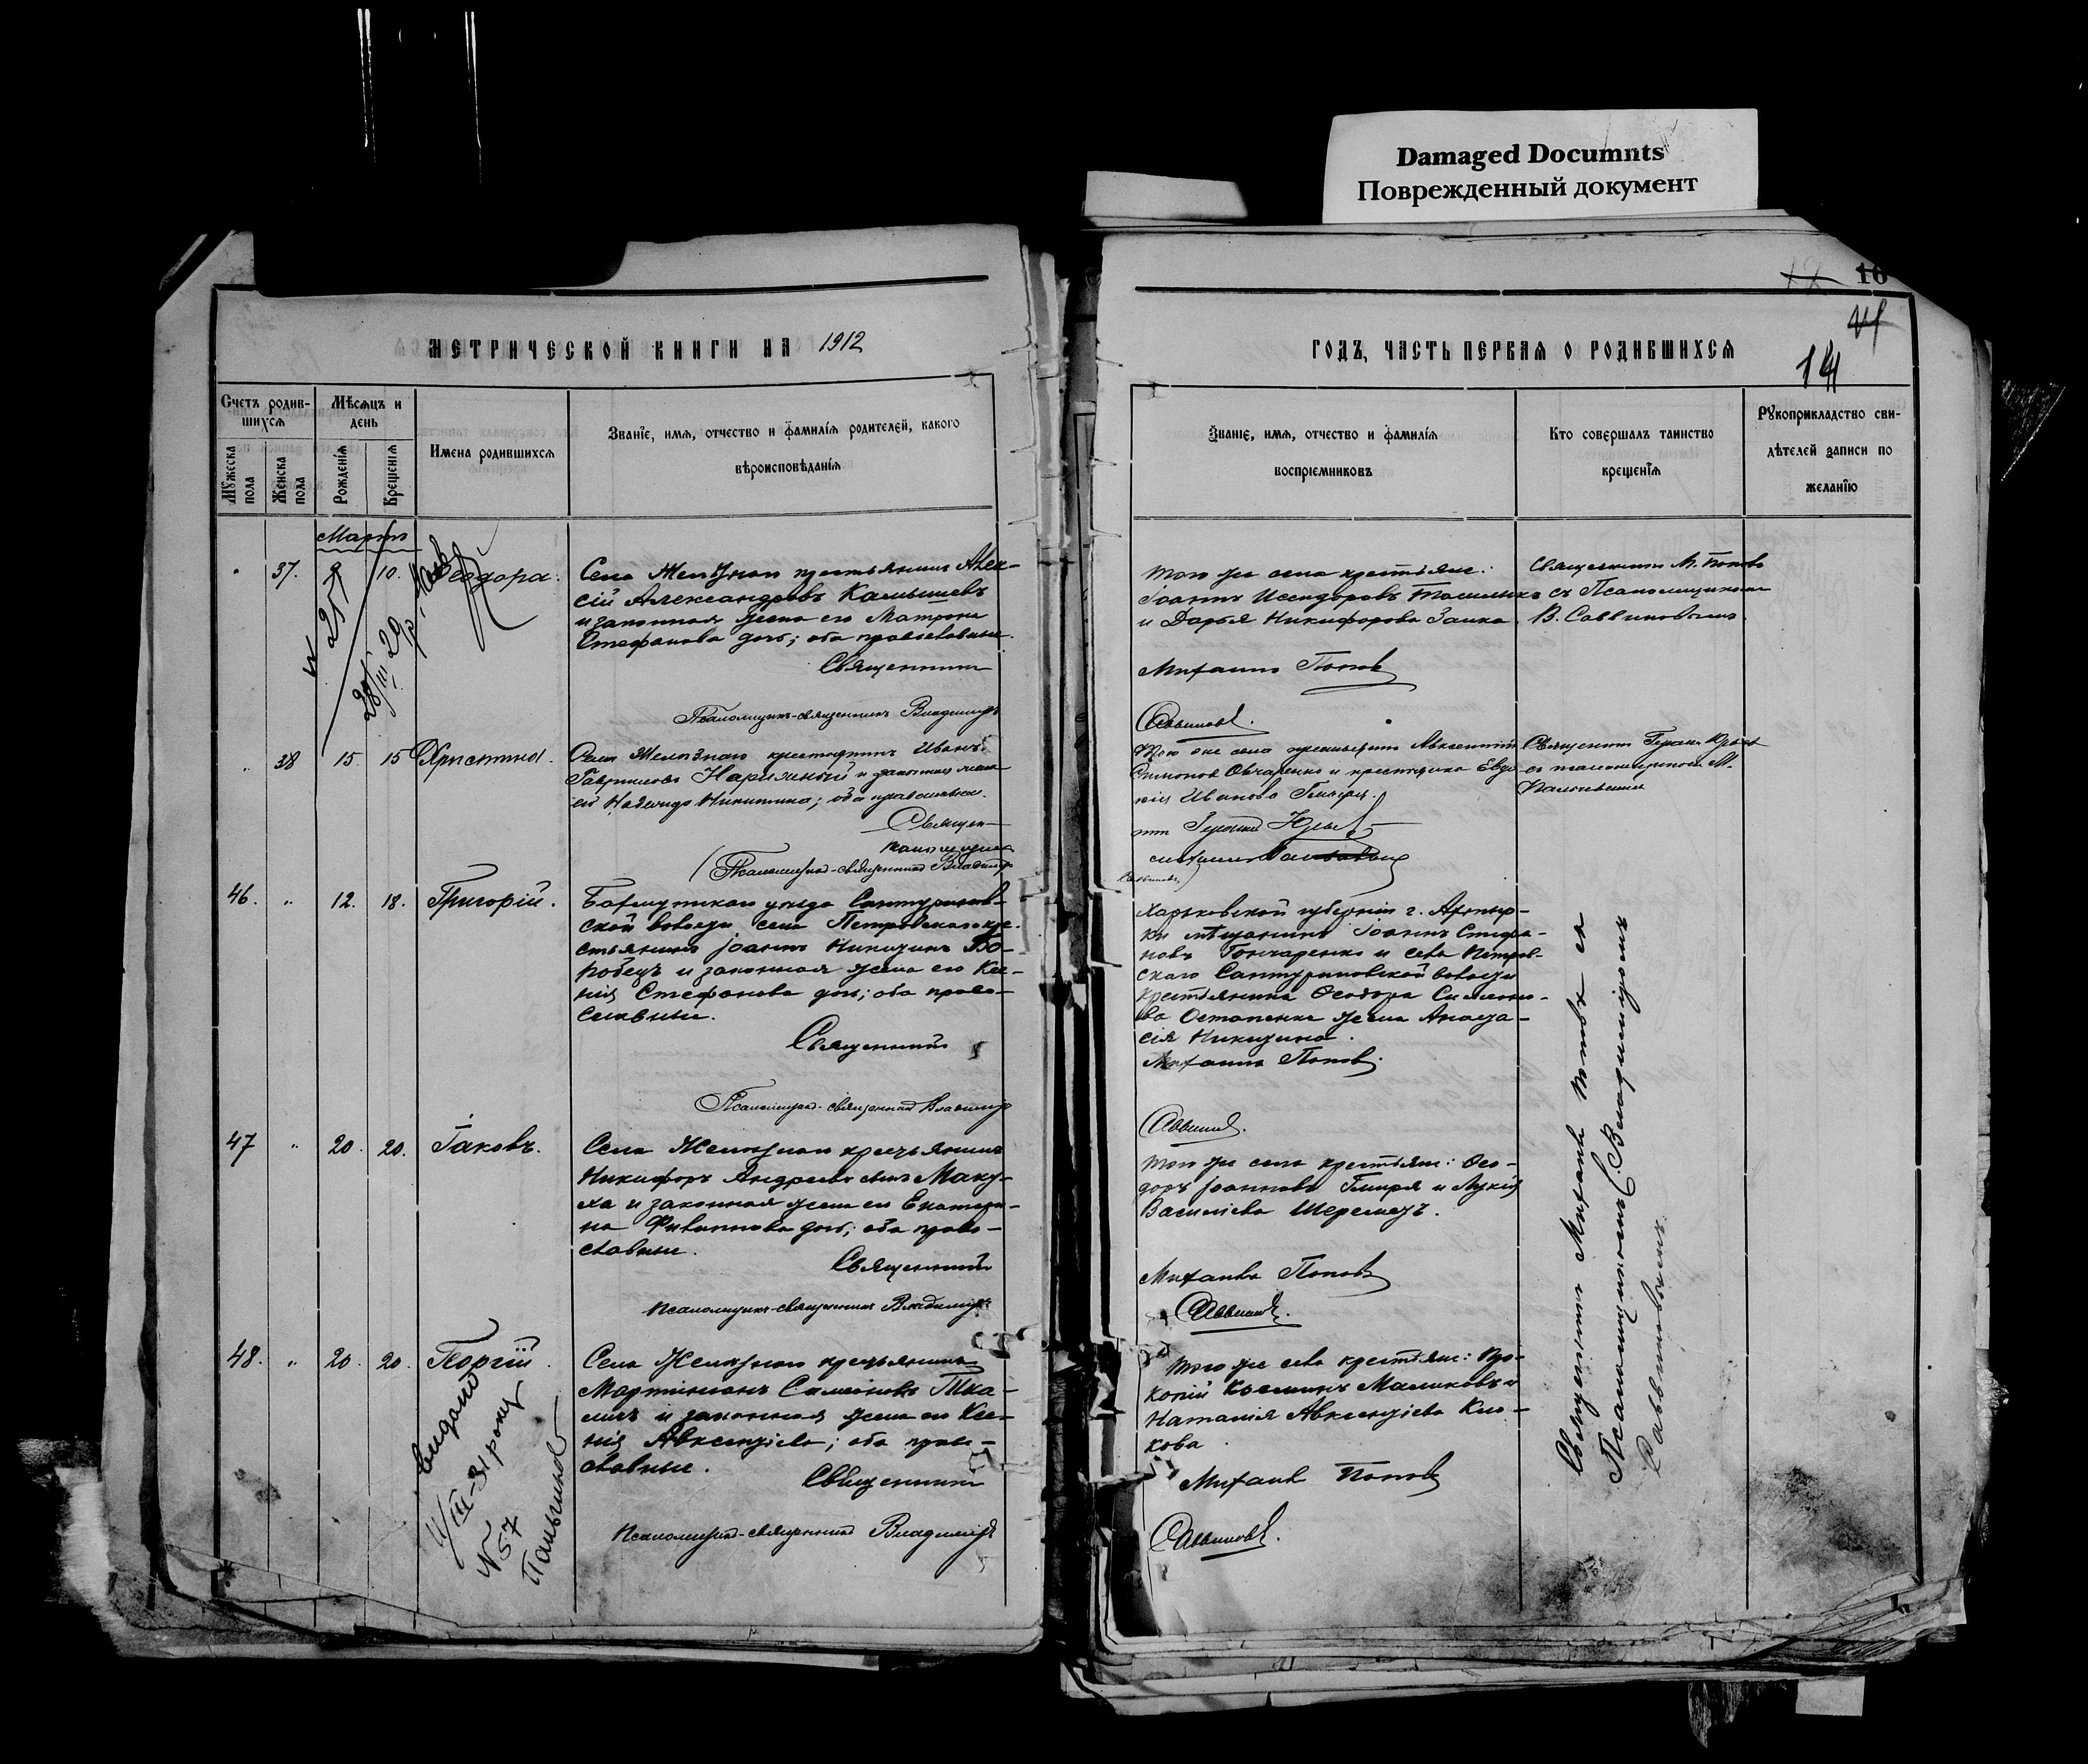 Damaged Documnts
Поврежденный документ
16
14
МЕТРИЧЕСКОЙ КНИГИ НА 1912
ГОДЪ, ЧАСТЬ ПЕРВАЯ О РОДИВШИХСЯ
Счетъ родив-
шихся
Мужеска пола
Женска пола
Мѣсяцъ и
день
Рожденія
Крещенія
Имена родившихся
Званіе, имя, отчество и фамилія родителей, какого
вѣроисповѣданія
Званіе, имя, отчество и фамилія
воспріемниковъ
Кто совершалъ таинство
крещенія
Рукоприкладство сви-
дѣтелей записи по
желанію
Мартъ
37. 9 10. Ѳеодора.
Села Желѣзнаго крестьянинъ Алек-
сій Александровъ Камышевъ
и законная жена его Матрона
Стефанова дочь; оба православные.
Священникъ
Псаломщикъ-священникъ Владиміръ
того же села крестьяне:
Іоаннъ Исидоровъ
и Дарья Никифорова Заика
Михаилъ Поповъ
Саввиновъ.
Священникъ М. Поповъ
съ Псаломщикомъ
В. Саввиновымъ.
38 15. 15 Христина.
Села Желѣзнаго крестьянинъ Иванъ
Гавриловъ и законная жена
его Надежда Никитина; оба православные.
Священ-
Псаломщикъ-священникъ Владиміръ
Того же села Авксентій
Симоновъ Овчаренко и крестьянка Евдо-
кія Иванова
Священникъ
съ псаломщикомъ М.
46. " 12. 18. Григорій.
Бахмутскаго уѣзда Сантуринов-
ской волости села Петровскаго кре-
стьянинъ Іоаннъ Никитинъ
и законная жена его Ксе-
нія Стефанова дочь; оба право-
славные.
Священникъ
Псаломщикъ-священникъ Владиміръ
Харьковской губерніи г. Ахтыр-
ки мѣщанинъ Іоаннъ Стефа-
новъ Гончаренко и села Петров-
скаго Сантуриновской волости
крестьянина Ѳеодора Симоно-
ва Остапенка жена Анаста-
сія Никитина.
Михаилъ Поповъ.
Саввиновъ.
47 " 20. 20. Іаковъ.
Села Желѣзнаго крестьянинъ
Никифоръ Андреевъ Маку-
ха и законная жена его Екатери-
на Филиппова дочь; оба право-
славные.
Священникъ
Псаломщикъ-священникъ Владиміръ
того же села крестьяне: Ѳео-
доръ Іоанновъ Гмиря и Лукія
Василіева Шереметъ.
Михаилъ Поповъ
Саввиновъ.
48. " 20. 20. Георгій.
Села Желѣзнаго крестьянинъ
Мартиніанъ Симеоновъ Тка-
личъ и законная жена его Ксе-
нія Авксентіева; оба право-
славные.
Священникъ
Псаломщикъ-священникъ Владиміръ
того же села крестьяне: Про-
копій Косминъ Маликовъ и
Наталія Авксентіева Клю-
кова
Михаилъ Поповъ
Саввиновъ.
Священникъ Михаилъ Поповъ съ
Псаломщикомъ С. Владиміромъ
Саввиновымъ.
11/III-31 року
N 57